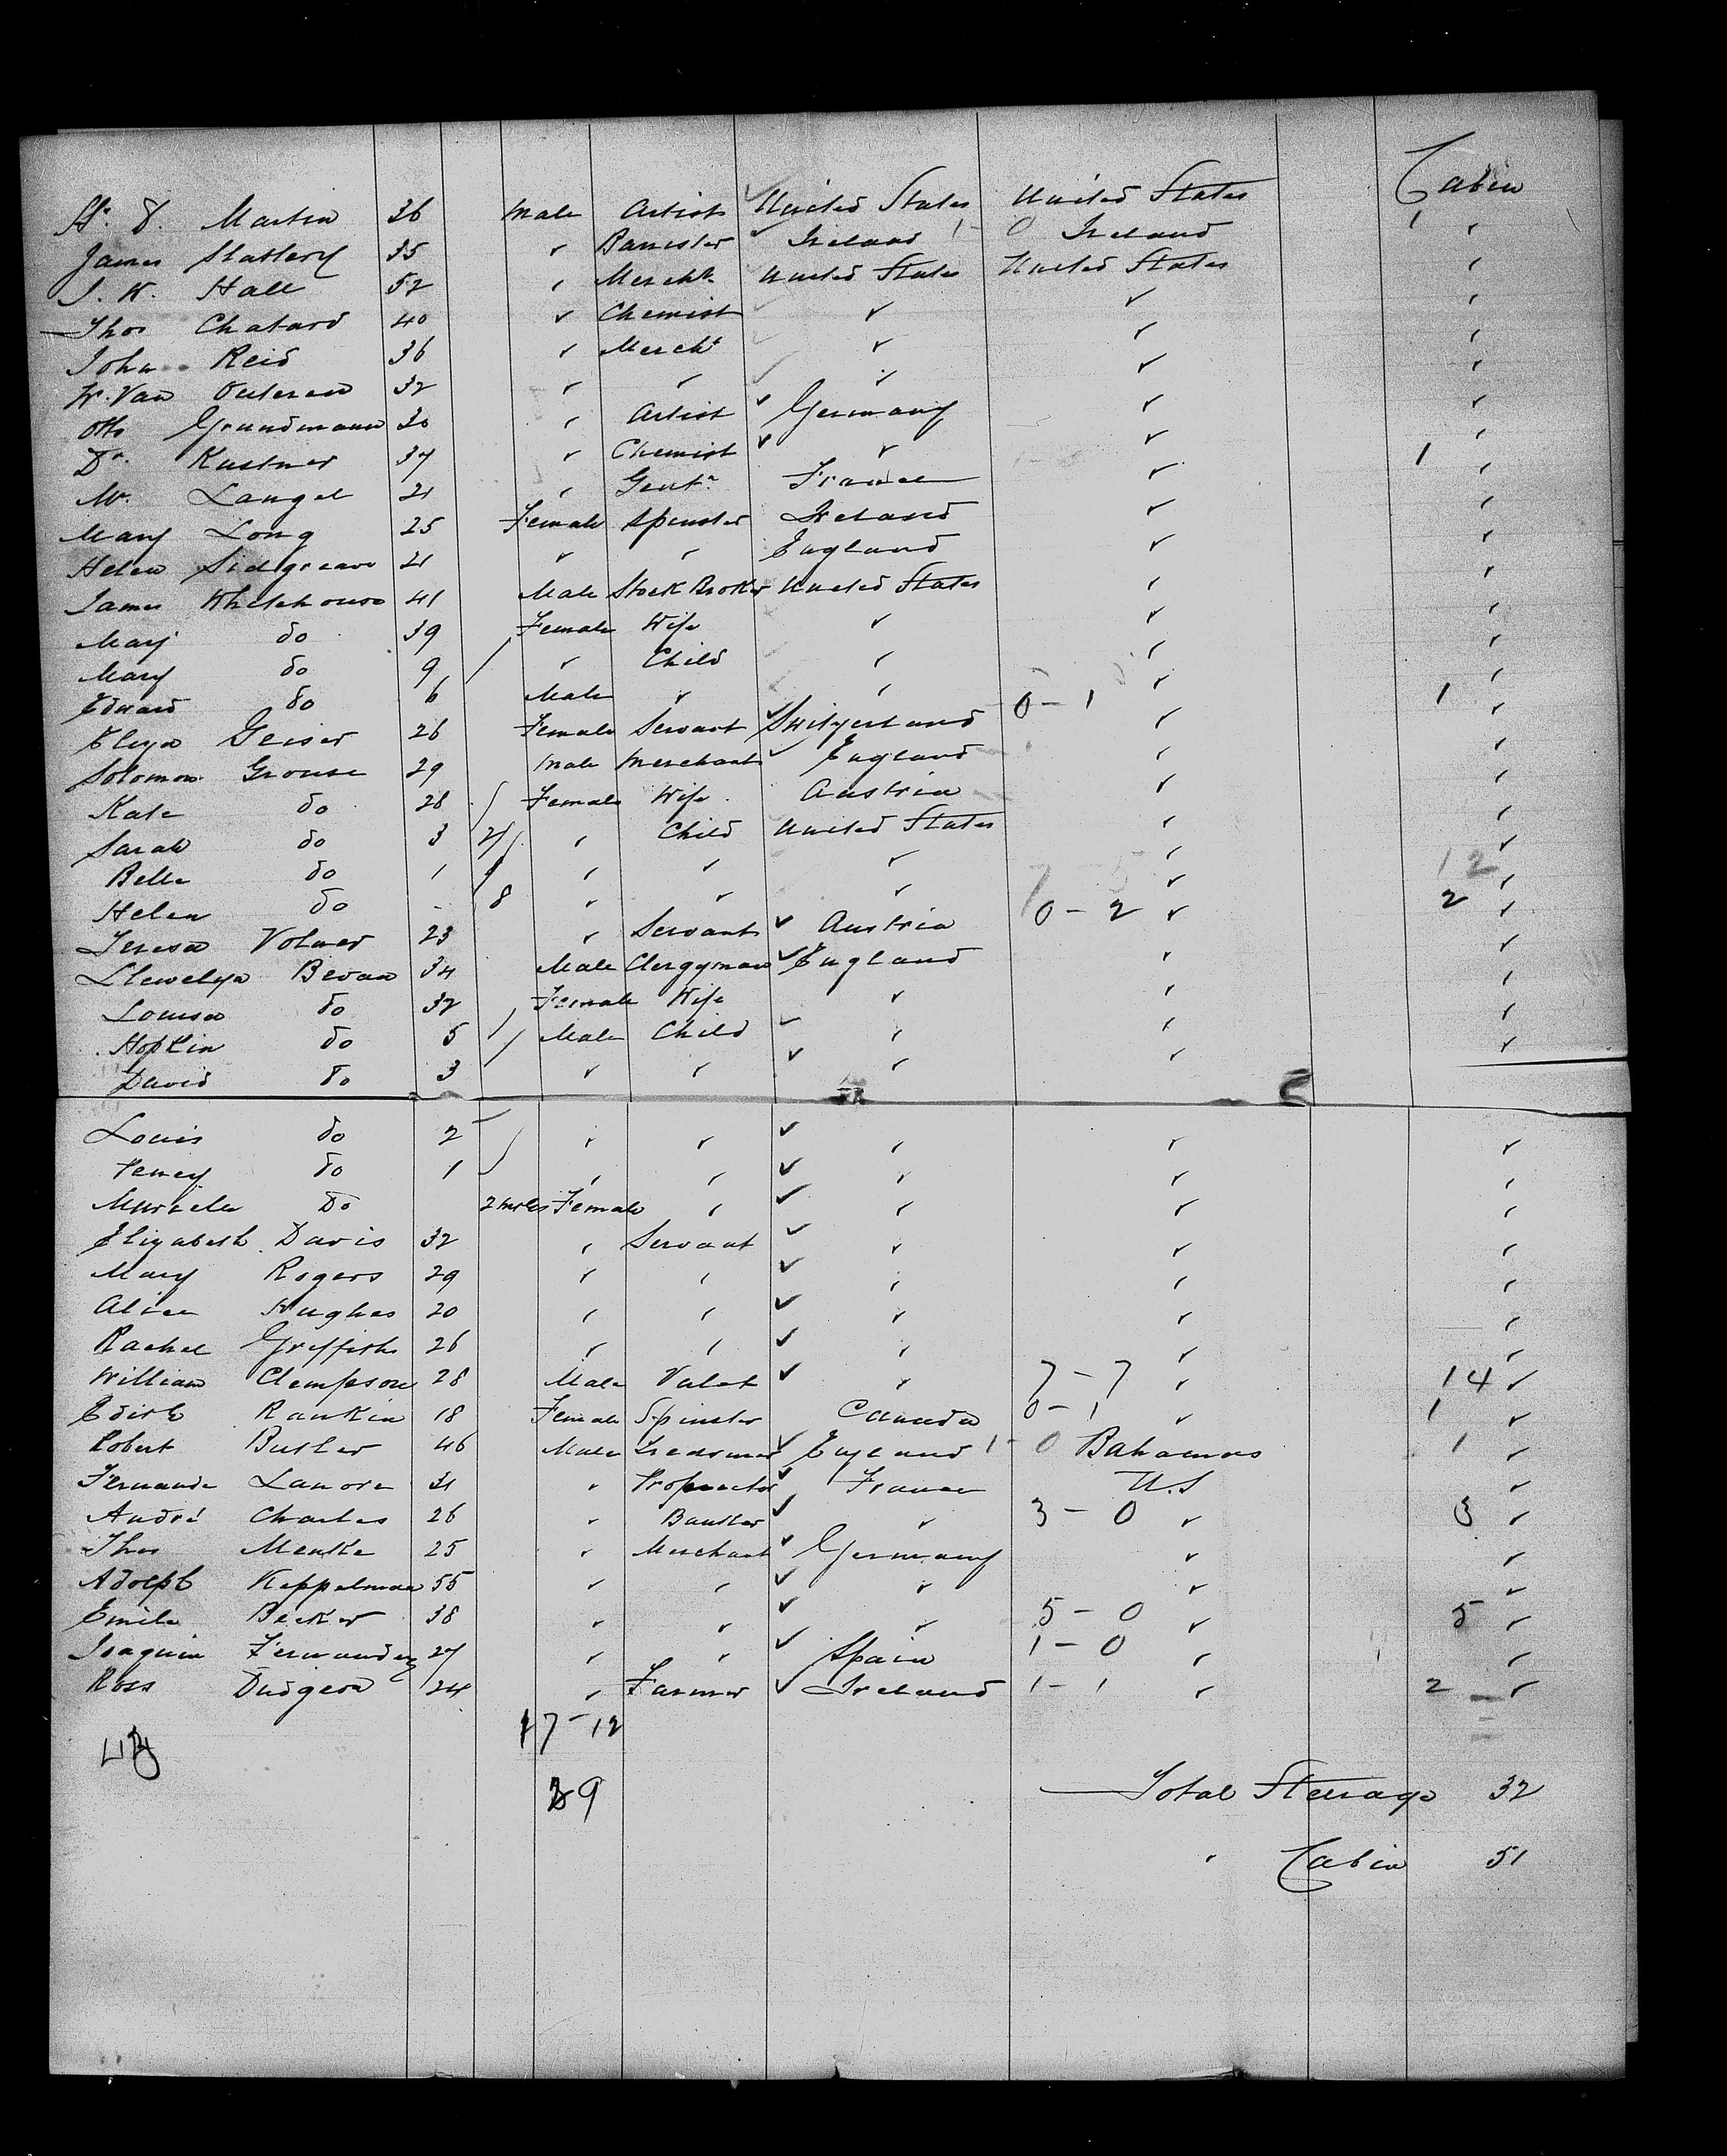 Cabin
H. D. Martin 36 Male Artist ✓ United States United States 1 ✓
James Slattery 35 ✓ Barrister ✓ Ireland 1-0 Ireland ✓
J. K. Hall 52 ✓ Mercht United States United States ✓
Thos Chatard 40 ✓ Chemist ✓ ✓ ✓
John Reid 36 ✓ Mercht ✓ ✓ ✓
W. Van 32 ✓ ✓ ✓ ✓ ✓
Otto Grundmann 30 ✓ Artist ✓ Germany ✓ ✓
Dr. Kustner 37 ✓ Chemist ✓ ✓ ✓ 1 ✓
M. Langel 21 ✓ Gentn France ✓ ✓
Mary Long 25 Female Spinster Ireland ✓ ✓
Helen Sidgreave 21 ✓ ✓ England ✓ ✓
James Whitehouse 41 Male Stock Broker United States ✓ ✓
Mary do 39 Female Wife ✓ ✓ ✓
Mary do 9 ✓ Child ✓ ✓ ✓
Edward do 6 Male ✓ ✓ ✓ ✓
Eliza Geiser 26 Female Servant ✓ Switzerland 0-1 ✓ 1 ✓
Solomon Grouse 29 Male Merchant ✓ England ✓ ✓
Kate do 28 Female Wife Austria ✓ ✓
Sarah do 3 ✓ Child United States ✓ ✓
Bella do 1 9 ✓ ✓ ✓ ✓ ✓
Helen do - 8 ✓ ✓ ✓ 7 5 ✓ 12 ✓
Teresa Volmer 23 ✓ Servant ✓ Austria 0-2 ✓ 2 ✓
Llewelyn Bevan 34 Male Clergyman ✓ England ✓ ✓
Louisa do 32 Female Wife ✓ ✓ ✓
Hopkin do 5 Male Child ✓ ✓ ✓ ✓
David do 3 ✓ ✓ ✓ ✓ ✓ ✓
Louis do 2 ✓ ✓ ✓ ✓ ✓ ✓
do 1 ✓ ✓ ✓ ✓ ✓ ✓
do 2 mths Female ✓ ✓ ✓ ✓ ✓
Elizabeth Davis 32 ✓ Servant ✓ ✓ ✓ ✓
Mary Rogers 29 ✓ ✓ ✓ ✓ ✓ ✓
Alice Hughes 20 ✓ ✓ ✓ ✓ ✓ ✓
Rachel Griffiths 26 ✓ ✓ ✓ ✓ ✓ ✓
William Clempson 28 Male Valet ✓ ✓ 7-7 ✓ 14 ✓
Edith Rankin 18 Female Spinster Canada 0-1 ✓ 1 ✓
Robert Butler 46 Male ✓ England 1-0 Bahamas 1 ✓
Fernande Lamore 31 ✓ Proprietor ✓ France U.S ✓
André Charles 26 ✓ Banker ✓ ✓ 3-0 ✓ 3 ✓
Thos Menke 25 ✓ Merchant ✓ Germany ✓ ✓
Adolph Keppelman 55 ✓ ✓ ✓ ✓ ✓ ✓
Emile Becker 38 ✓ ✓ ✓ ✓ 5-0 ✓ 5 ✓
Joaquin Fernandez 27 ✓ ✓ ✓ Spain 1-0 ✓ 1 ✓
Ross Dudgeon 24 ✓ Farmer ✓ Ireland 1-1 ✓ 2 ✓
17-12
29
Total Steerage 32
✓ Cabin 51